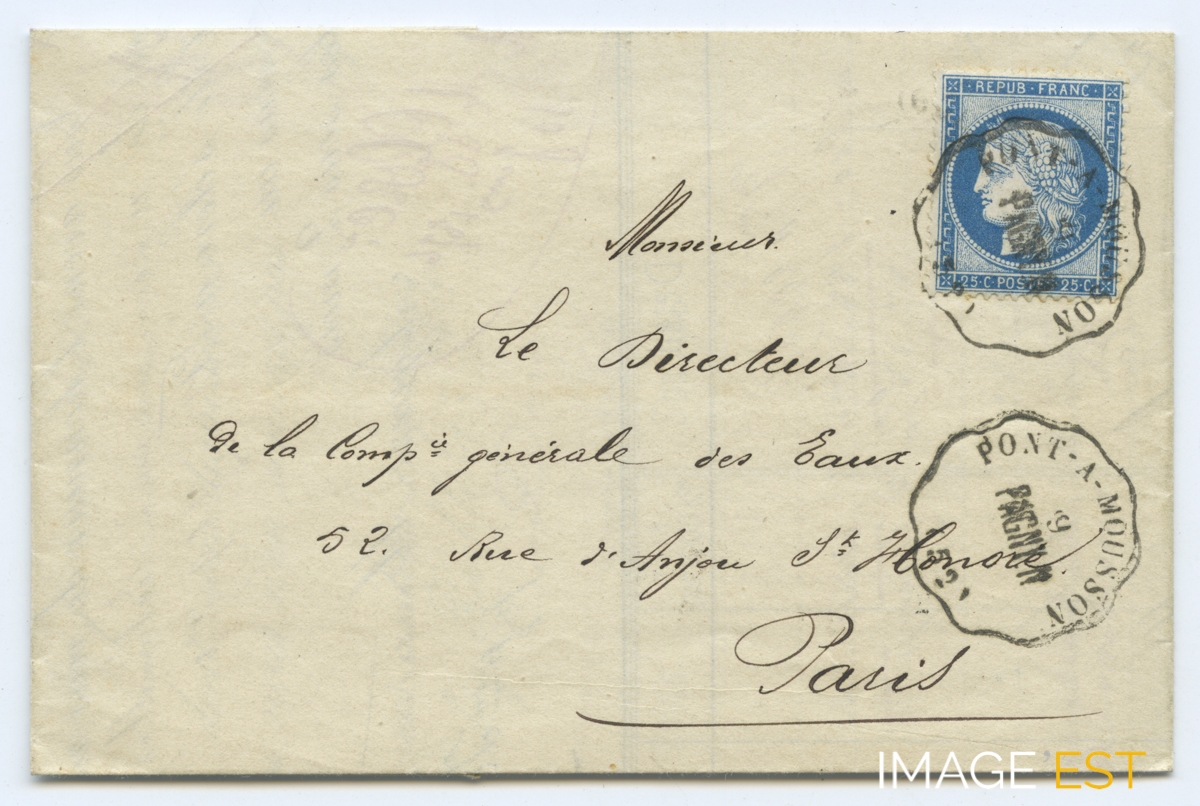 REPUB · FRANC ·
25 · C · POSTES 25 · C
PONT-A-MOUSSON
Monsieur
Le Directeur
de la Compie générale des Eaux.
52. Rue d'Anjou St. Honoré.
Paris
PONT-A-MOUSSON
9
(52)
IMAGE EST